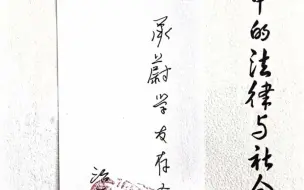 中的法律与社会
承蔚学友存